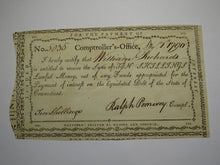 FOR THE PAYMENT OF
No. 3030 Comptroller's-Office, 1790
I hereby certify that William Richards
is entitled to receive the Sum of TEN SHILLINGS
Lawful Money, out of any Funds appropriated for the
Payment of interest on the liquidated Debt of the State of
Connecticut.
Ten Shillings Ralph Pomeroy Compt.